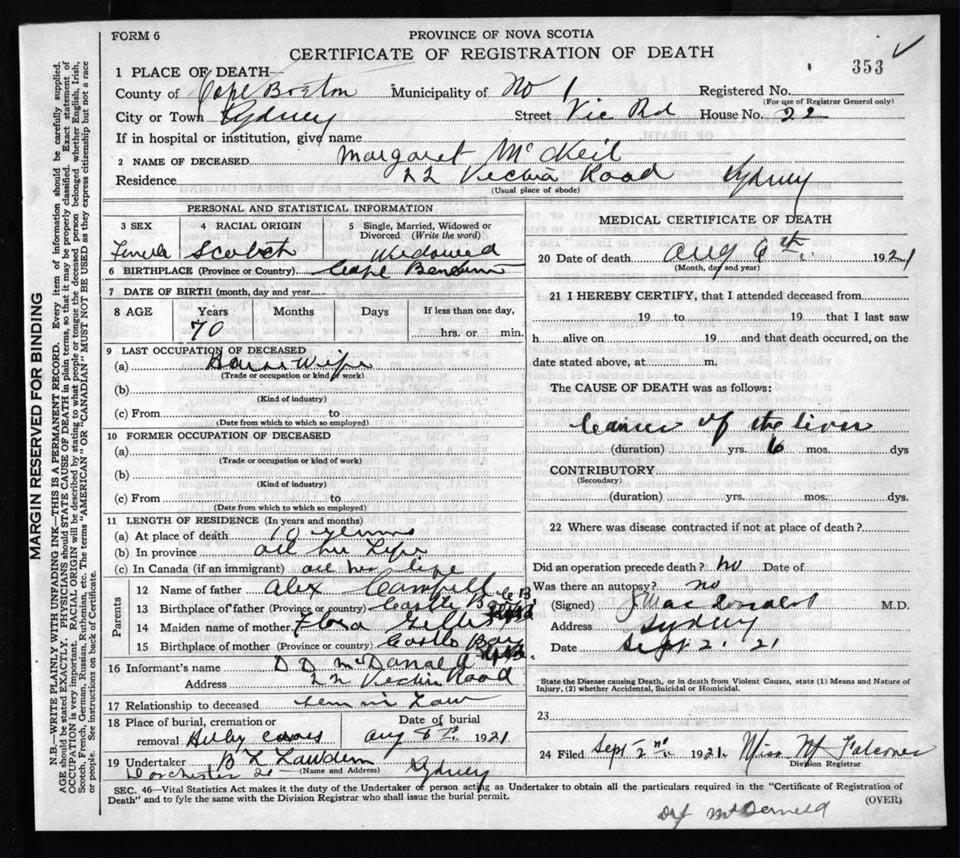 FORM 6
PROVINCE OF NOVA SCOTIA
CERTIFICATE OF REGISTRATION OF DEATH
353
1 PLACE OF DEATH
County of Cape Breton Municipality of No 1 Registered No.
(For use of Registrar General only)
City or Town Sydney Street Vic Rd House No. 22
If in hospital or institution, give name
2 NAME OF DECEASED Margaret McNeil
Residence 22 Road Sydney
(Usual place of abode)
PERSONAL AND STATISTICAL INFORMATION
3 SEX 4 RACIAL ORIGIN 5 Single, Married, Widowed or Divorced (Write the word)
Female Scotch Widowed
6 BIRTHPLACE (Province or Country) Cape
7 DATE OF BIRTH (month, day and year)
8 AGE Years Months Days If less than one day,
70 hrs. or min.
9 LAST OCCUPATION OF DECEASED
(a) House Wife
(Trade or occupation or kind of work)
(b)
(Kind of industry)
(c) From to
(Date from which to which so employed)
10 FORMER OCCUPATION OF DECEASED
(a)
(Trade or occupation or kind of work)
(b)
(Kind of industry)
(c) From to
(Date from which to which so employed)
11 LENGTH OF RESIDENCE (In years and months)
(a) At place of death 10
(b) In province all her Life
(c) In Canada (if an immigrant) all her life
Parents
12 Name of father Alex Campbell
13 Birthplace of father (Province or country) Castle Bay C B
14 Maiden name of mother Flora Gillis
15 Birthplace of mother (Province or country) Castle Bay
16 Informant's name D D McDonald
Address 22 Road
17 Relationship to deceased in Law
18 Place of burial, cremation or removal Date of burial
Aug 8th 1921
19 Undertaker B L
Dorchester (Name and Address) Sydney
MEDICAL CERTIFICATE OF DEATH
20 Date of death Aug 6th 1921
(Month, day and year)
21 I HEREBY CERTIFY, that I attended deceased from
19 to 19 that I last saw
h alive on 19 and that death occurred, on the
date stated above, at m.
The CAUSE OF DEATH was as follows:
Cancer of the liver
(duration) yrs. 6 mos. dys
CONTRIBUTORY
(Secondary)
(duration) yrs. mos. dys.
22 Where was disease contracted if not at place of death?
Did an operation precede death? no Date of
Was there an autopsy? no
(Signed) J MacDonald M.D.
Address Sydney
Date Sept 2. 21
*State the Disease causing Death, or in death from Violent Causes, state (1) Means and Nature of
Injury, (2) whether Accidental, Suicidal or Homicidal.
23
24 Filed Sept 2nd 1921. Miss M Falconer
Division Registrar
SEC. 46—Vital Statistics Act makes it the duty of the Undertaker or person acting as Undertaker to obtain all the particulars required in the "Certificate of Registration of
Death" and to fyle the same with the Division Registrar who shall issue the burial permit. (OVER)
MARGIN RESERVED FOR BINDING
N.B.—WRITE PLAINLY WITH UNFADING INK—THIS IS A PERMANENT RECORD. Every item of information should be carefully supplied.
AGE should be stated EXACTLY. PHYSICIANS should STATE CAUSE OF DEATH in plain terms, so that it may be properly classified. Exact statement of
OCCUPATION is very important. RACIAL ORIGIN will be described by stating to what people or tongue the deceased person belonged whether English, Irish,
Scotch, French, German, Russian, Ruthenian, etc. The terms "AMERICAN" OR "CANADIAN" MUST NOT BE USED as they express citizenship but not a race
or people. See instructions on back of Certificate.